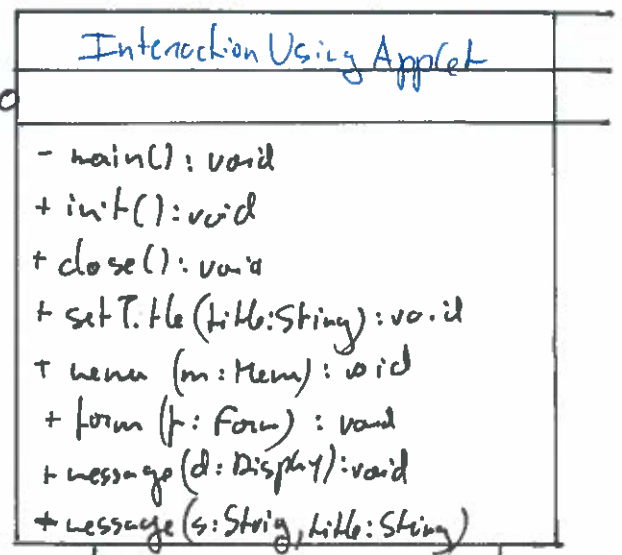 Interaction Using Applet
- main(): void
+ init(): void
+ close(): void
+ setTitle(title:String): void
+ menu (m: Menu): void
+ form (f: Form) : void
+ message(d: Display): void
+ message(s: String, title: String)